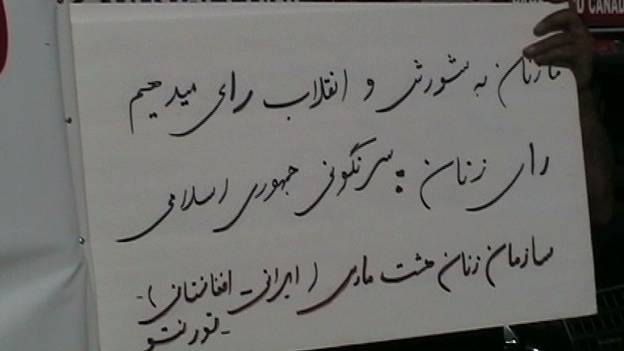 CANADA
ما زنان به شورش و انقلاب رای میدهیم
رای زنان: سرنگونی جمهوری اسلامی
سازمان زنان هشت مارس (ایرانی - افغانستانی) -
- تورنتو